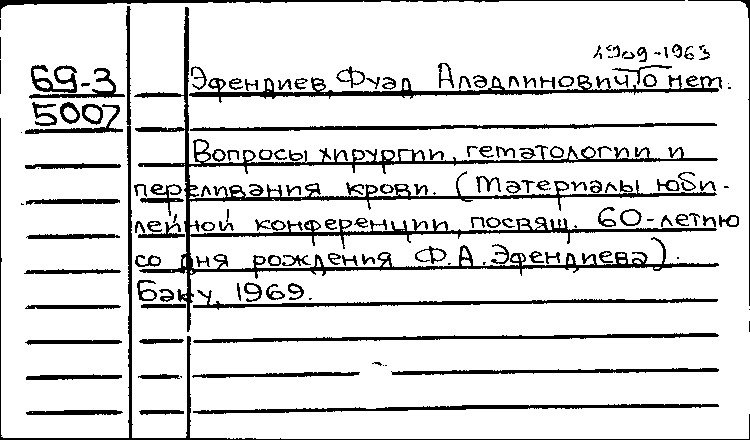 1909-1963
69-3 Эфендиев, Фуад Аладдинович, о нем.
5007
Вопросы хирургии, гематологии и
переливания крови. (Материалы юби-
лейной конференции, посвящ. 60-летию
со дня рождения Ф.А.Эфендиева).
Баку, 1969.